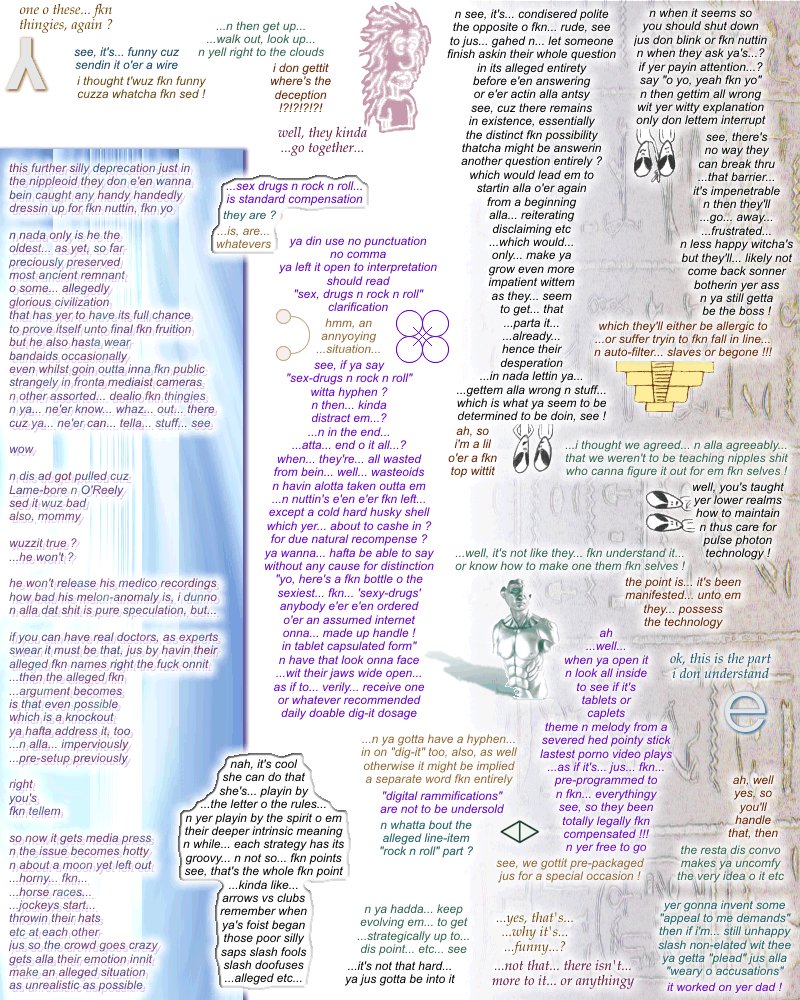 one o these... fkn
thingies, again ?
see, it's... funny cuz
sendin it o'er a wire
i thought t'wuz fkn funny
cuzza whatcha fkn sed !
...n then get up...
...walk out, look up...
n yell right to the clouds
i don gettit
where's the
deception
!?!?!?!?!
well, they kinda
...go together...
this further silly deprecation just in
the nippleoid they don e'en wanna
bein caught any handy handedly
dressin up for fkn nuttin, fkn yo
n nada only is he the
oldest... as yet, so far
preciously preserved
most ancient remnant
o some... allegedly
glorious civilization
that has yer to have its full chance
to prove itself unto final fkn fruition
but he also hasta wear
bandaids occasionally
even whilst goin outta inna fkn public
strangely in fronta mediaist cameras
n other assorted... dealio fkn thingies
n ya... ne'er know... whaz... out... there
cuz ya... ne'er can... tella... stuff... see
wow
n dis ad got pulled cuz
Lame-bore n O'Reely
sed it wuz bad
also, mommy
wuzzit true ?
...he won't ?
he won't release his medico recordings
how bad his melon-anomaly is, i dunno
n alla dat shit is pure speculation, but...
if you can have real doctors, as experts
swear it must be that, jus by havin their
alleged fkn names right the fuck onnit
...then the alleged fkn
...argument becomes
is that even possible
which is a knockout
ya hafta address it, too
...n alla... imperviously
...pre-setup previously
right
you's
fkn tellem
so now it gets media press
n the issue becomes hotty
n about a moon yet left out
...horny... fkn...
...horse races...
...jockeys start...
throwin their hats
etc at each other
jus so the crowd goes crazy
gets alla their emotion innit
make an alleged situation
as unrealistic as possible
...sex drugs n rock n roll...
is standard compensation
they are ?
...is, are...
whatevers
ya din use no punctuation
no comma
ya left it open to interpretation
should read
"sex, drugs n rock n roll"
clarification
hmm, an
annyoying
...situation...
see, if ya say
"sex-drugs n rock n roll"
witta hyphen ?
n then... kinda
distract em...?
...n in the end...
...atta... end o it all...?
when... they're... all wasted
from bein... well... wasteoids
n havin alotta taken outta em
...n nuttin's e'en e'er fkn left...
except a cold hard husky shell
which yer... about to cashe in ?
for due natural recompense ?
ya wanna... hafta be able to say
without any cause for distinction
"yo, here's a fkn bottle o the
sexiest... fkn... 'sexy-drugs'
anybody e'er e'en ordered
o'er an assumed internet
onna... made up handle !
in tablet capsulated form"
n have that look onna face
...wit their jaws wide open...
as if to... verily... receive one
or whatever recommended
daily doable dig-it dosage
...n ya gotta have a hyphen...
in on "dig-it" too, also, as well
otherwise it might be implied
a separate word fkn entirely
"digital rammifications"
are not to be undersold
n whatta bout the
alleged line-item
"rock n roll" part ?
nah, it's cool
she can do that
she's... playin by
...the letter o the rules...
n yer playin by the spirit o em
their deeper intrinsic meaning
n while... each strategy has its
groovy... n not so... fkn points
see, that's the whole fkn point
...kinda like...
arrows vs clubs
remember when
ya's foist began
those poor silly
saps slash fools
slash doofuses
...alleged etc...
n ya hadda... keep
evolving em... to get
...strategically up to...
dis point... etc... see
...it's not that hard...
ya jus gotta be into it
n see, it's... condisered polite
the opposite o fkn... rude, see
to jus... gahed n... let someone
finish askin their whole question
in its alleged entirety
before e'en answering
or e'er actin alla antsy
see, cuz there remains
in existence, essentially
the distinct fkn possibility
thatcha might be answerin
another question entirely ?
which would lead em to
startin alla o'er again
from a beginning
alla... reiterating
disclaiming etc
...which would...
only... make ya
grow even more
impatient wittem
as they... seem
to get... that
...parta it...
...already...
hence their
desperation
...in nada lettin ya...
...gettem alla wrong n stuff...
which is what ya seem to be
determined to be doin, see !
ah, so
i'm a lil
o'er a fkn
top wittit
n when it seems so
you should shut down
jus don blink or fkn nuttin
n when they ask ya's...?
if yer payin attention...?
say "o yo, yeah fkn yo"
n then gettim all wrong
wit yer witty explanation
only don lettem interrupt
see, there's
no way they
can break thru
...that barrier...
it's impenetrable
n then they'll
...go... away...
...frustrated...
n less happy witcha's
but they'll... likely not
come back sonner
botherin yer ass
n ya still getta
be the boss !
which they'll either be allergic to
...or suffer tryin to fkn fall in line...
n auto-filter... slaves or begone !!!
...i thought we agreed... n alla agreeably...
that we weren't to be teaching nipples shit
who canna figure it out for em fkn selves !
well, you's taught
yer lower realms
how to maintain
n thus care for
pulse photon
technology !
...well, it's not like they... fkn understand it...
or know how to make one them fkn selves !
the point is... it's been
manifested... unto em
they... possess
the technology
ah
...well...
when ya open it
n look all inside
to see if it's
tablets or
caplets
theme n melody from a
severed hed pointy stick
lastest porno video plays
...as if it's... jus... fkn...
pre-programmed to
n fkn... everythingy
see, so they been
totally legally fkn
compensated !!!
n yer free to go
ok, this is the part
i don understand
e
ah, well
yes, so
you'll
handle
that, then
see, we gottit pre-packaged
jus for a special occasion !
the resta dis convo
makes ya uncomfy
the very idea o it etc
...yes, that's...
...why it's...
...funny...?
...not that... there isn't...
more to it... or anythingy
yer gonna invent some
"appeal to me demands"
then if i'm... still unhappy
slash non-elated wit thee
ya getta "plead" jus alla
"weary o accusations"
it worked on yer dad !